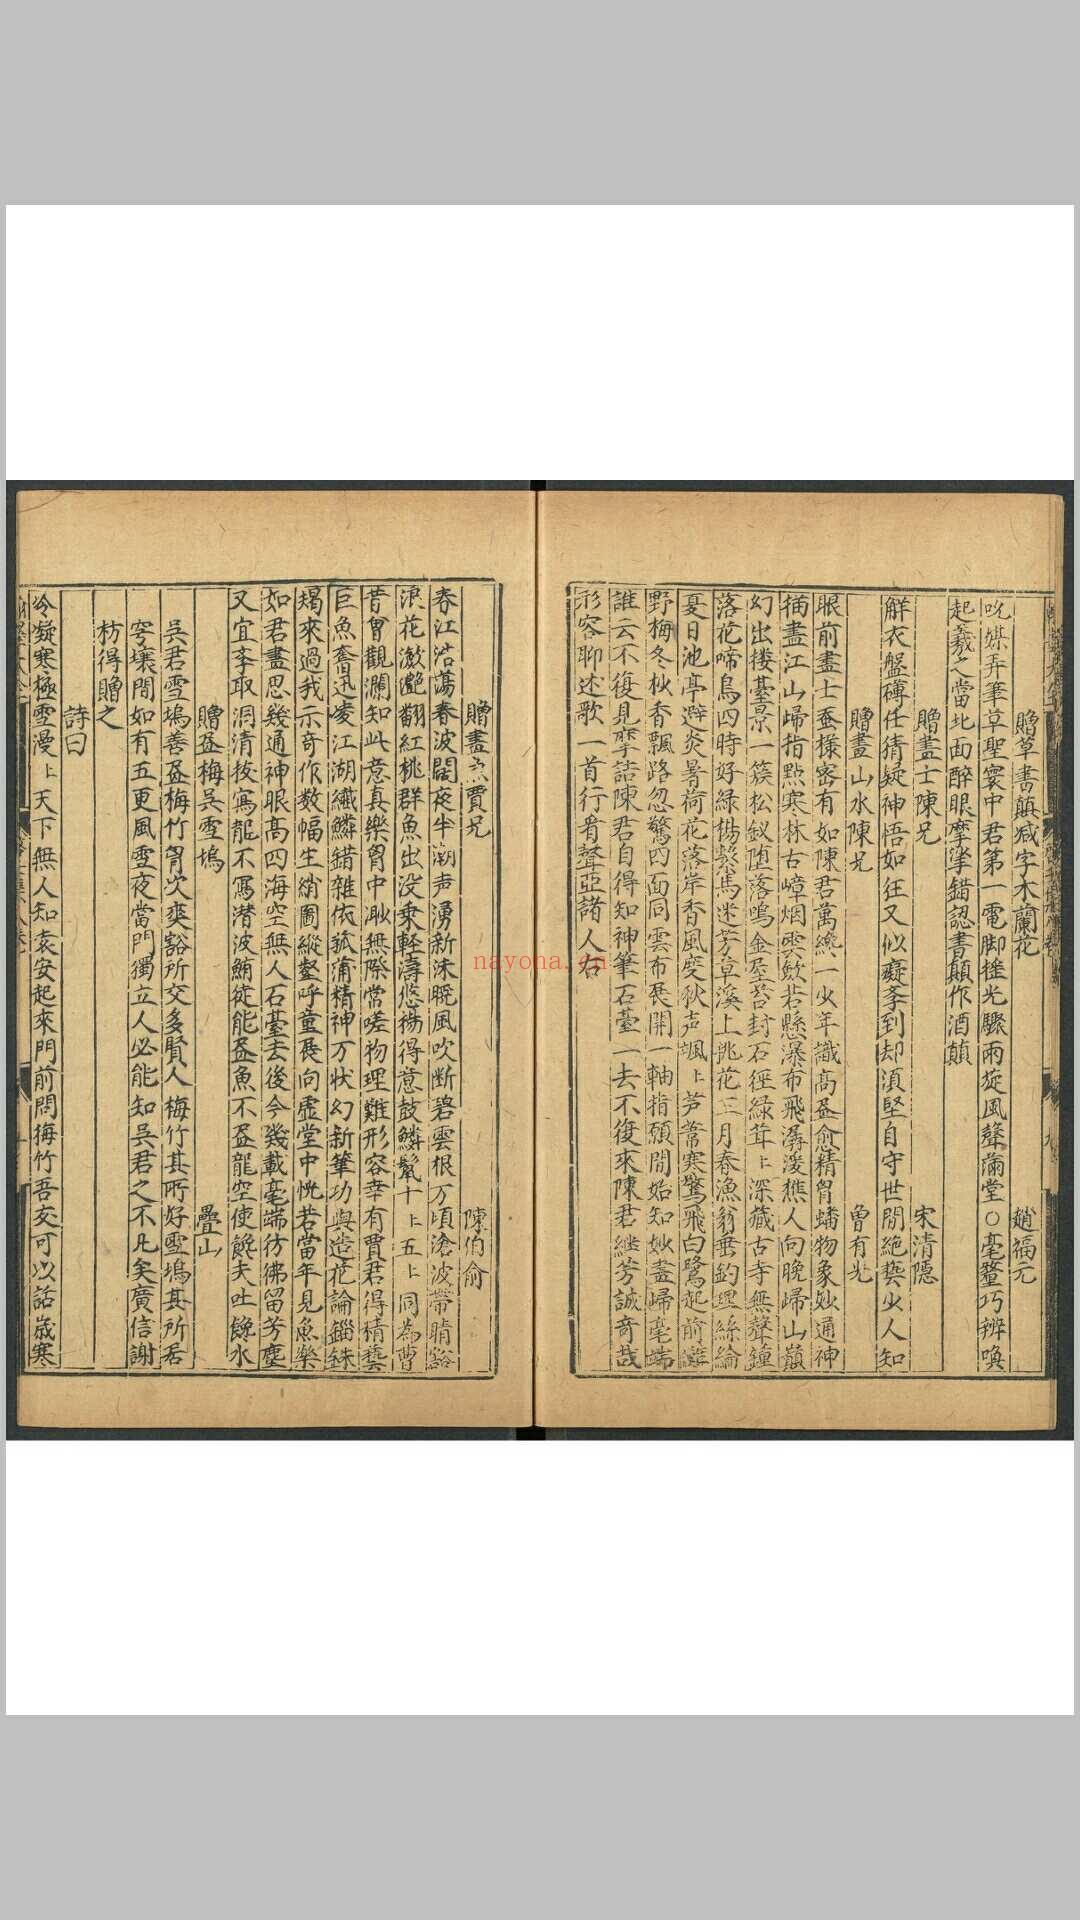 贈草書顛減字木蘭花　趙福元
吮媒弄筆草聖寰中君第一電脚搖光驟雨旋風聲滿堂○毫釐巧辨喚
起羲之當北面醉眼摩挲錯認書顛作酒顛
贈畫士陳兄　宋清隱
解衣盤礴任猜疑神悟如狂又似癡李到却湏堅自守世間絕藝少人知
贈畫山水陳兄　曾有光
眼前畫士蚕様密有如陳君萬纔一少年識高盈愈精胷蟠物象妙通神
描畫江山歸指點寒林古嶂烟雲歛若懸瀑布飛潺湲樵人向晚歸山巔
幻出楼臺景一簇松釵堕落鳴金屋苔封石徑綠茸〻深藏古寺無聲鐘
落花啼鳥四時好綠楊繫馬迷芳草溪上桃花三月春漁翁垂釣理絲綸
夏日池亭避炎暑荷花落岸香風度秋声颯〻芦常寒鴉飛白鷺起前灘
野梅冬秋香飄路忽驚四面同雲布展開一軸指顧間始知妙畫歸毫端
誰云不復見摩詰陳君自得知神筆石臺一去不復來陳君継芳誠奇哉
形容聊述歌一首行看聲亞諸人右
贈畫魚賈兄　陳伯俞
春江浩蕩春波闊夜半潮声湧新沫晚風吹断碧雲根万頃滄波帶晴谿
浪花瀲灩翻紅桃群魚出没乗軽濤悠揚得意鼓鱗鬣十〻五〻同為曹
昔曽觀瀾知此意真樂胷中渺無際常嗟物理難形容幸有賈君得精藝
巨魚奮迅凌江湖纖鱗錯雜依菰蒲精神万状幻新筆功與造花論錙銖
朅來過我示奇作数幅生綃圖縱壑呼童展向虛堂中恍若當年見魚樂
如君畫思幾通神眼高四海空無人石臺去後今幾載毫端彷彿留芳塵
又宜李取洞清技寫龍不寫潜波鮪徒能盈魚不盈龍空使饞夫吐饞水
贈盈梅吳雪塢　疊山
吳君雪塢善盈梅竹胷次爽豁所交多賢人梅竹其所好雪塢其所居
穹壤間如有五更風雪夜當門獨立人必能知吳君之不凡矣廣信謝
枋得贈之
詩曰
冷凝寒極雪漫〻天下無人知袁安起來門前問梅竹吾交可以話歳寒
nayona.cn